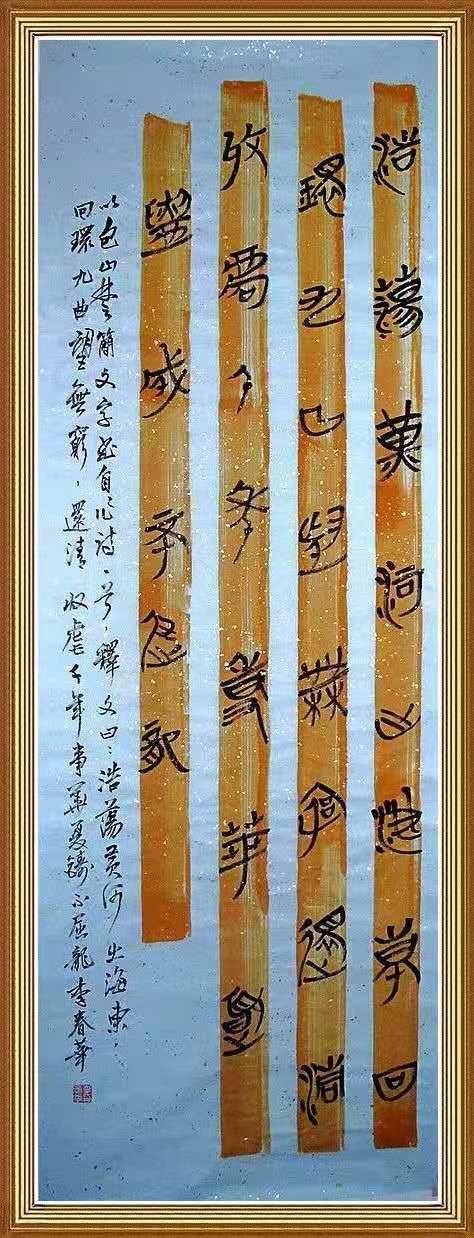 浩蕩黃河出海東回
環九曲望無窮還清
收虐千年事華夏
鑄成不屈龍
以包山楚簡文字书自作詩一首，釋文曰：浩蕩黃河出海東，
回環九曲望無窮，還清收虐千年事華夏鑄不屈龍李春華